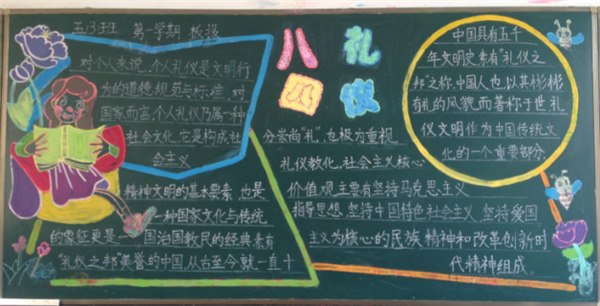 五(3)班 第一学期 板报
对个人来说,个人礼仪是文明行
为的道德规范与标准。对
国家而言,个人礼仪乃属一种
社会文化,它是构成社
会主义
精神文明的基本要素,也是
一种国家文化与传统
的象征更是一
国治国教民的经典。素有
"礼仪之邦"美誉的中国,从古至今就一直十
八 礼
四 仪
分崇尚"礼",也极为重视
礼仪教化。社会主义核心
价值观主要有坚持马克思主义
指导思想、坚持中国特色社会主义、坚持爱国
主义为核心的民族精神和改革创新时
代精神组成。
中国具有五千
年文明史素有"礼仪之
邦"之称,中国人也以其彬彬
有礼的风貌而著称于世,礼
仪文明作为中国传统文
化的一个重要部分.